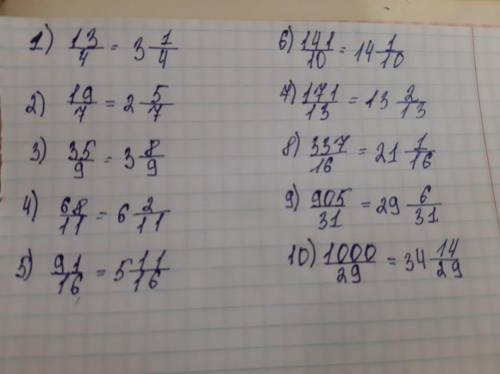 1) 13/4 = 3 1/4
2) 19/7 = 2 5/7
3) 35/9 = 3 8/9
4) 68/11 = 6 2/11
5) 91/16 = 5 11/16
6) 141/10 = 14 1/10
7) 171/13 = 13 2/13
8) 337/16 = 21 1/16
9) 905/31 = 29 6/31
10) 1000/29 = 34 14/29